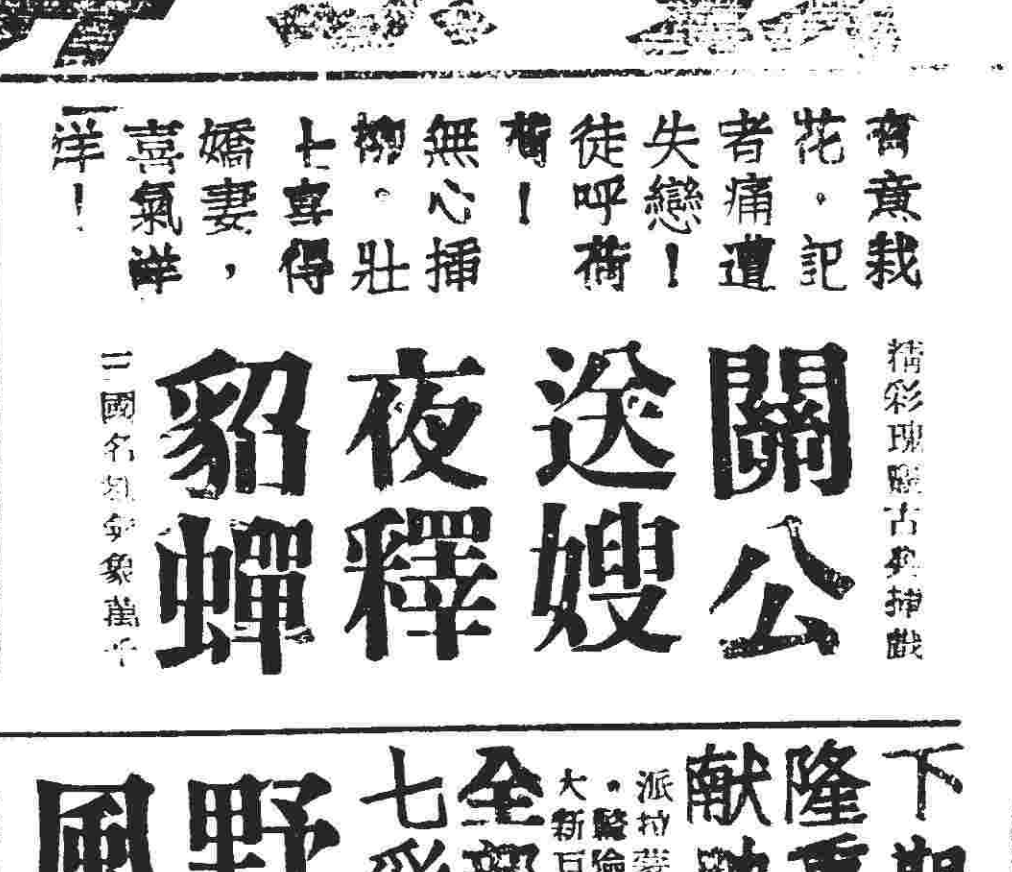 有意栽
花。記
者痛遭
失戀！
徒呼荷
荷！
無心插
柳。壯
士喜得
嬌妻，
喜氣洋
洋！
精彩瑰麗古典揷戲
關公
送嫂
夜釋
貂蟬
三國名氣象萬千
下期
隆重
献映
派拉蒙
。驚險
大新巨
全部
七彩
野
風